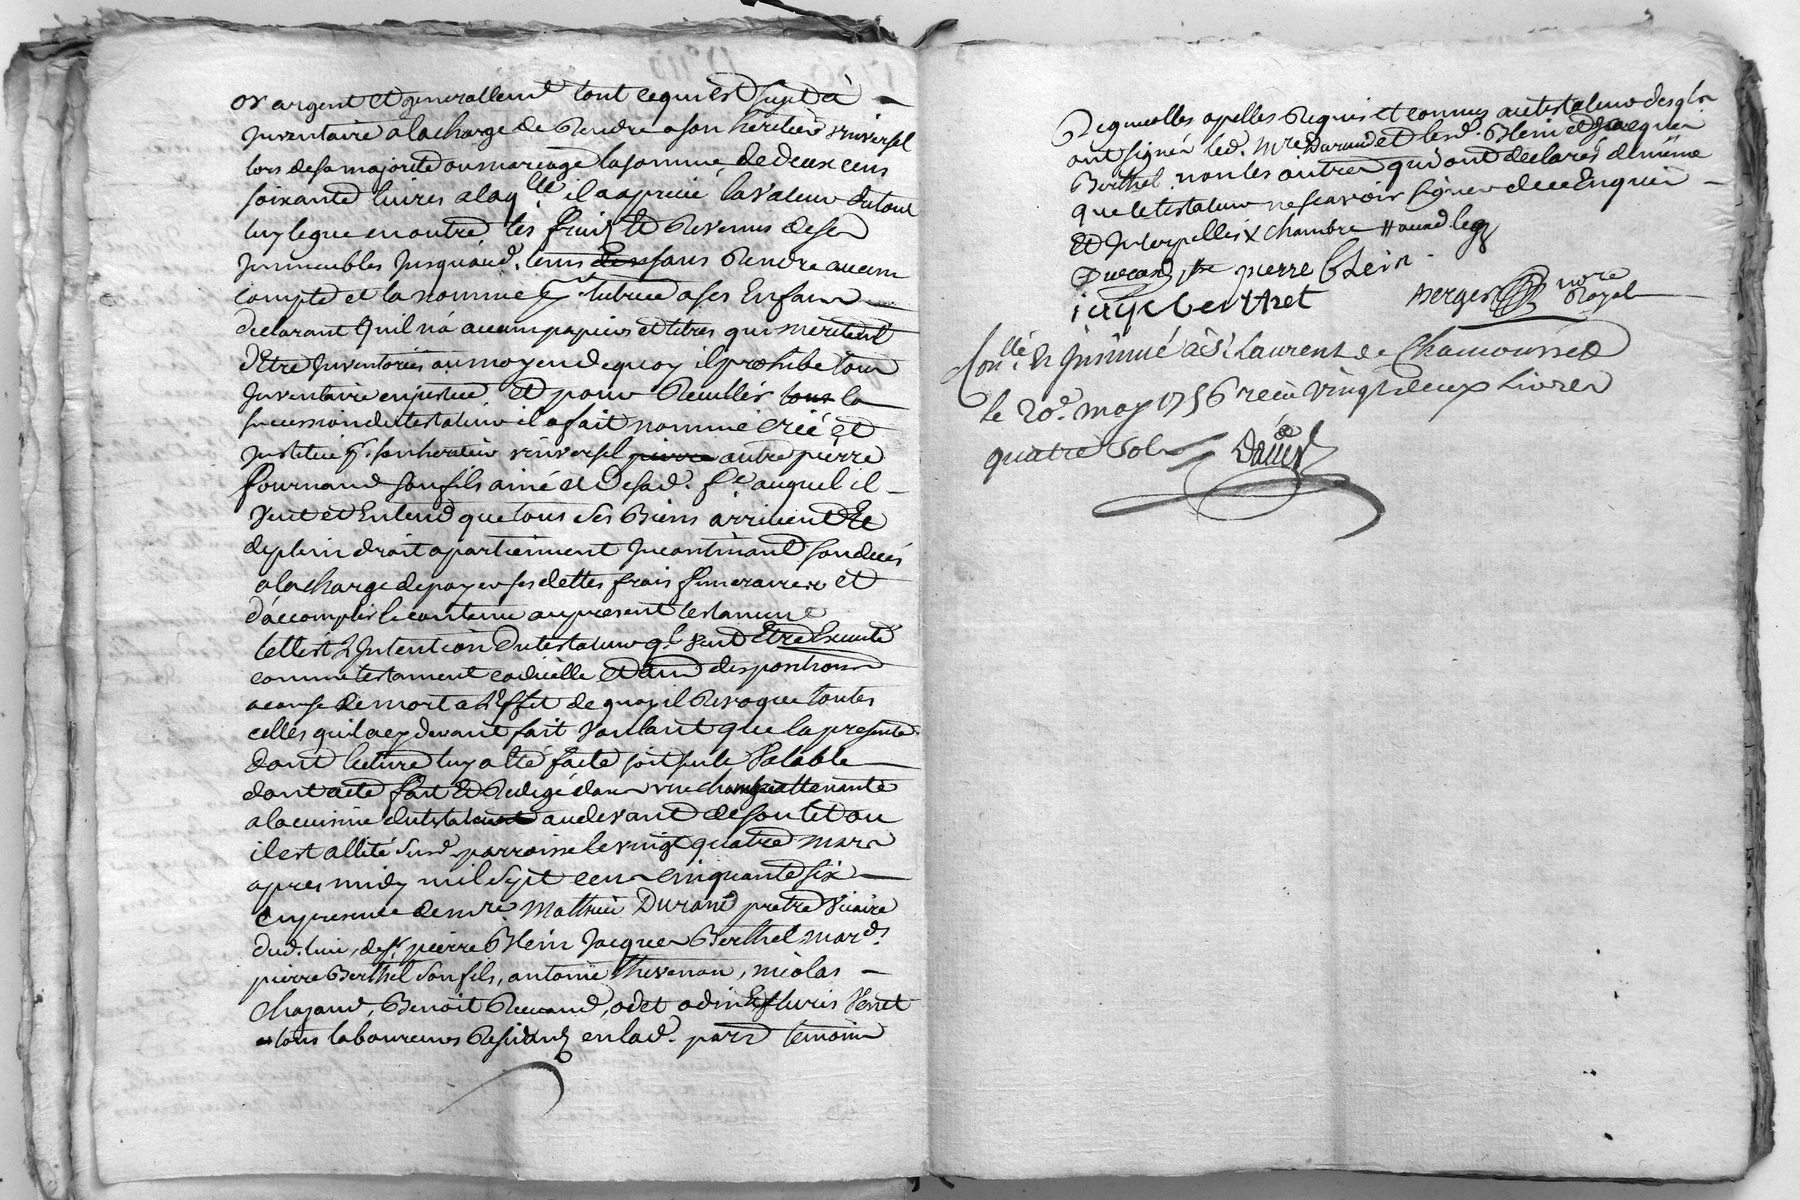 or argent et generallemt tout ce qui est sujet à
Inventaire a la charge de Rendre a son heritier vniversel
lors de sa majorité ou mariage la somme de deux cens
soixante livres a laqlle il a aprecié la valeur du tout
luy legue en outre les fruits et Revenus de ses
Immeubles Jusqu'aud. tems sans Rendre aucun
compte et la nomme pr tutrice a ses Enfans
declarant qu'il n'a aucun papiers et titres qui meritent
d'être Inventoriés au moyen de quoy il prohibe tout
Inventaire en justice Et pour Recuillir tous la
succession du testateur il a fait nommé créé et
Institué pr son heritier vniversel pierre autre pierre
fournand son fils ainé et De sad. fe auquel il
veut et Entend que tous ses Biens arrivent Et
de plein droit apartiennent Incontinant son decès
a la charge de payer ses dettes frais funeraires et
d'accomplir le contenu au present testament
telle est l'Intention du testateur ql veut Etre Executé
comme testament codicille et dispositions
a cause de mort a l'Effet de quoy il Revoque toutes
celles qu'il a cy devant fait voulant que la presente
dont lecture luy a été faite soit seule Valable
dont acte fait et Redigé dans vne chambre attenante
a la cuisine du testateur au devant de son lit ou
il est allité susd. parroisse le vingt quatre mars
apres midy mil sept cens cinquante six
En presence de mre Mathieu Durand pretre vicaire
dud. lieu, de sr pierre Blein Jacques Berthet mards
pierre Berthet son fils, antoine thevenon, nicolas
chazaud, Benoit, odet odin Et fleuris Veret
tous laboureurs Residants en lad. parse temoins
Requis et connus au testateur desqls
ont signés led. mre Durand et lesd. Blein et Jacques
Berthet non les autres qui ont declarés de même
que le testateur ne scavoir signer de ce Enquis
Et Interpellés x chambre
Durand ptre pierre Blein
jacque berthet Berger nore
Royal
Conllé et Insinué à St Laurent de Chamousset
le 20e may 1756 recu vingt deux Livres
quatre sols